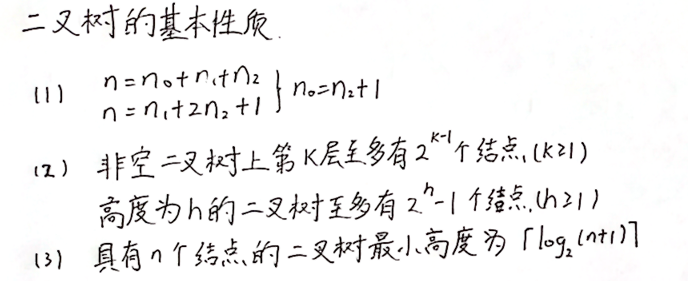 二叉树的基本性质.
(1) n=n₀+n₁+n₂
n=n₁+2n₂+1 } n₀=n₂+1
(2) 非空二叉树上第K层至多有2^(K-1)个结点,(K≥1)
高度为h的二叉树至多有2^h-1个结点.(h≥1)
(3) 具有n个结点的二叉树最小高度为⌈log₂(n+1)⌉